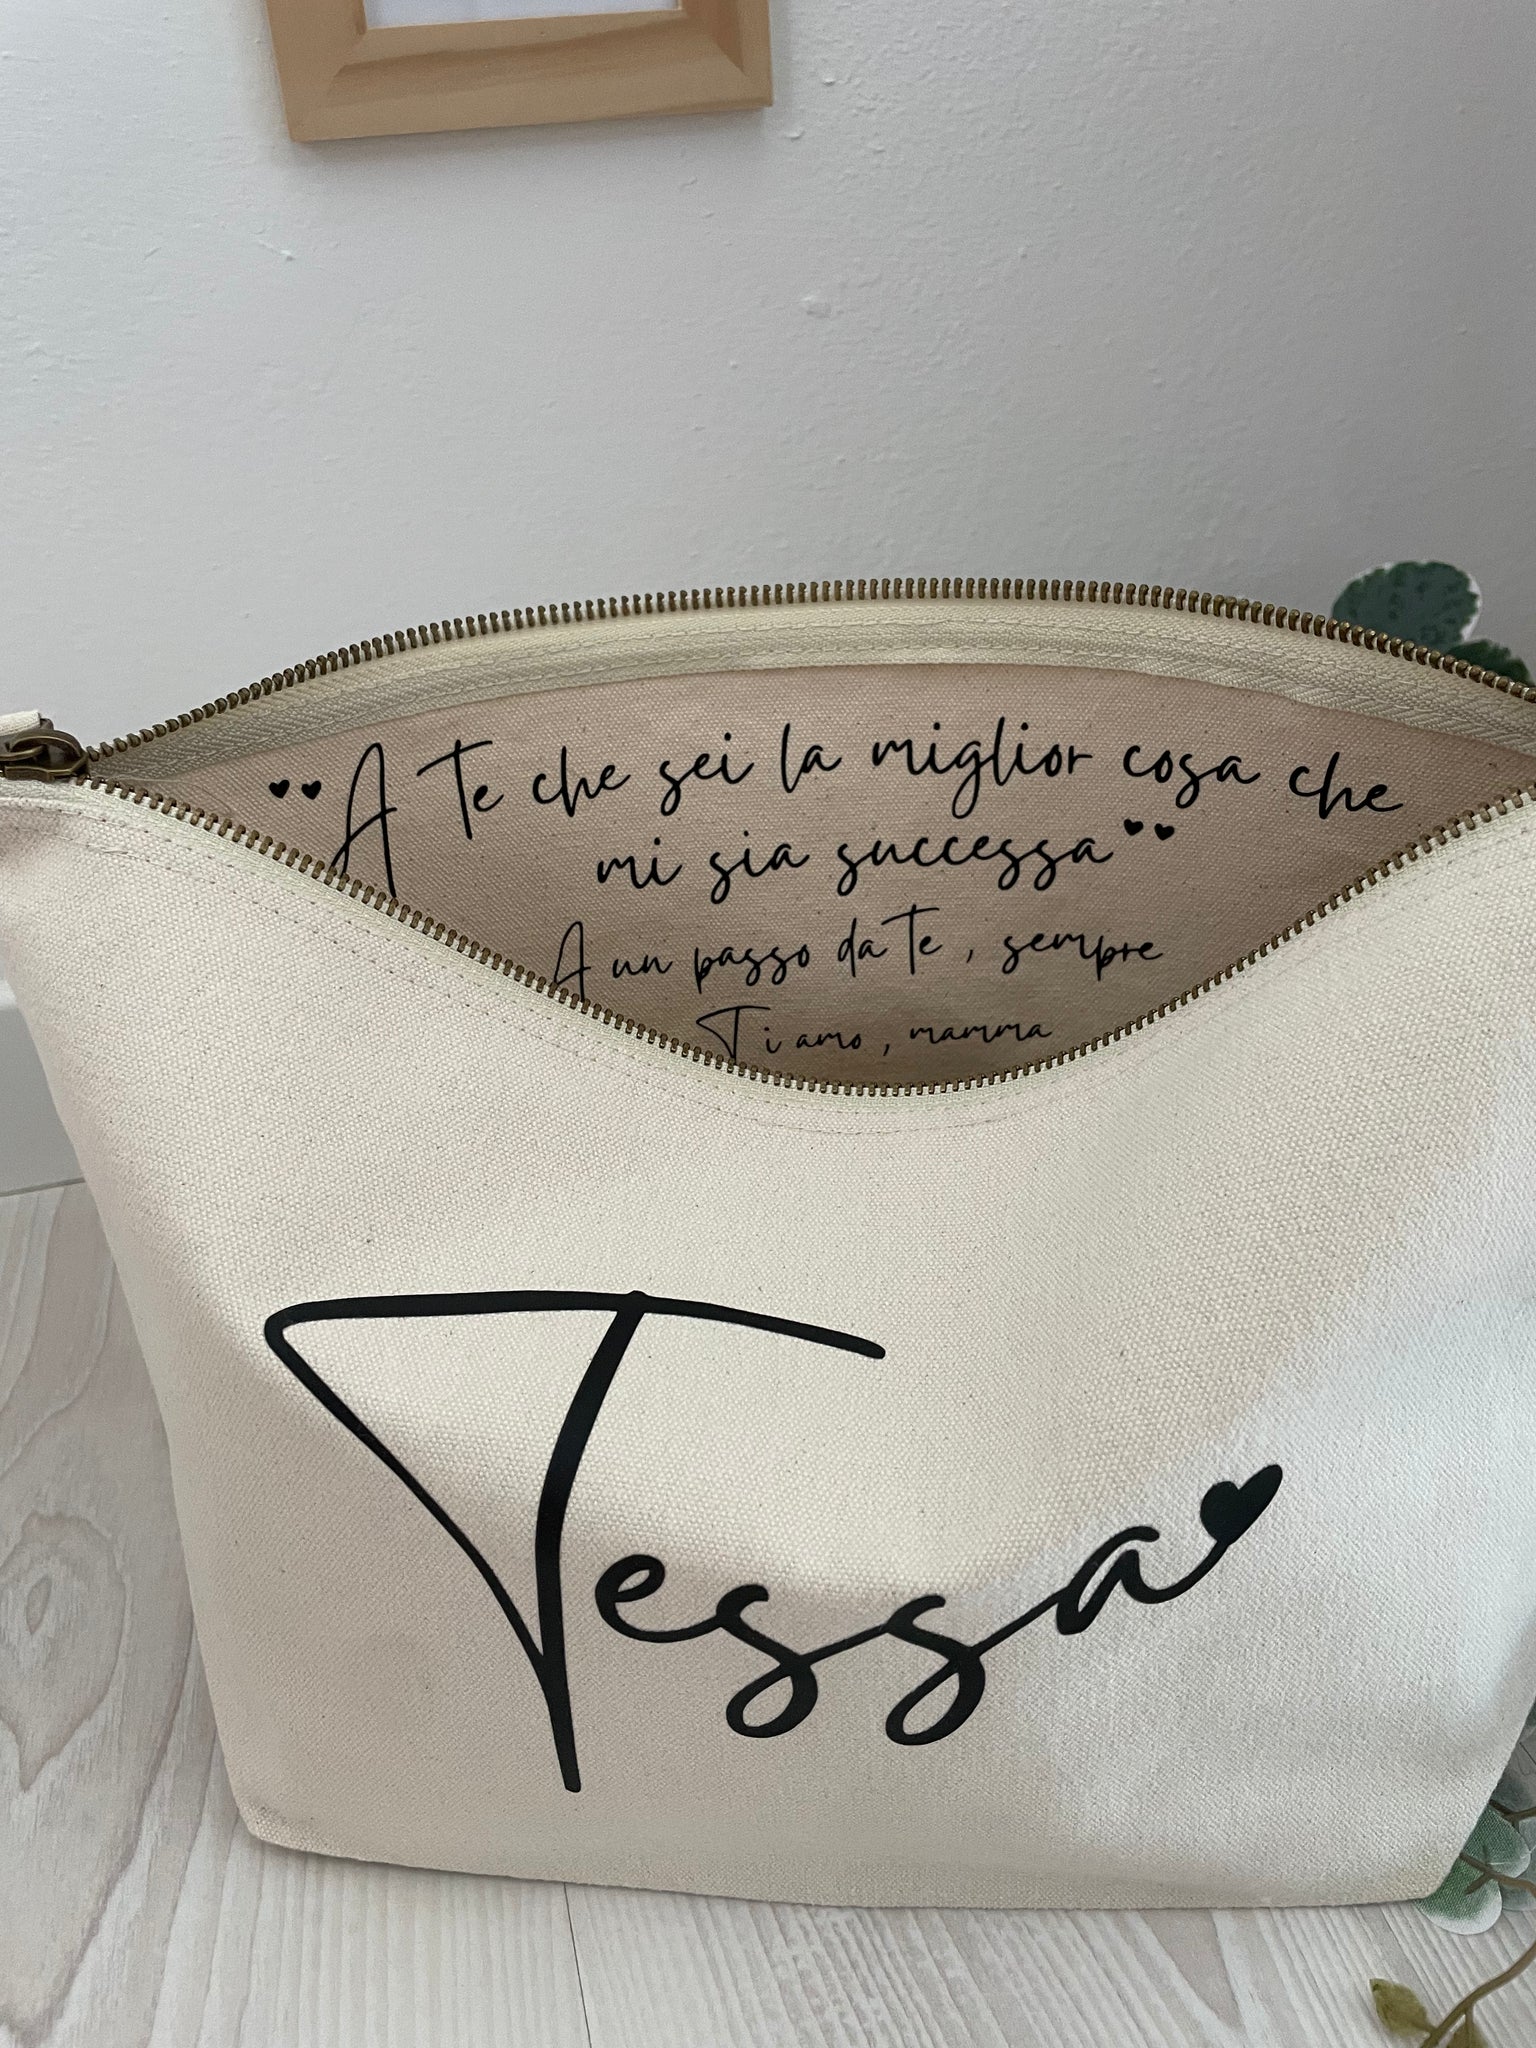 A te che sei la miglior cosa che
mi sia successa
A un passo da te, sempre
Ti amo, mamma
Tessa